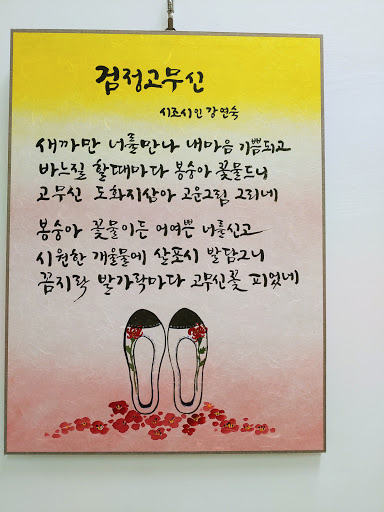 검정고무신
시조시인 강연숙
새까만 너를만나 내마음 기쁨되고
바느질 할때마다 봉숭아 꽃물드니
고무신 도화지삼아 고운그림 그리네
봉숭아 꽃물이든 어여쁜 너를신고
시원한 개울물에 살포시 발담그니
꼼지락 발가락마다 고무신꽃 피었네